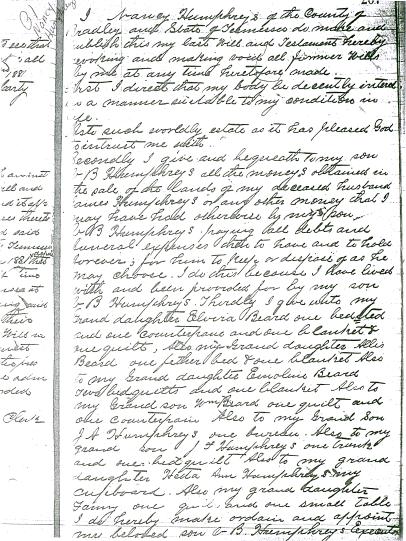 I Nancy Humphreys of the County of
Bradley and State of Tennessee do make and
publish this my last Will and Testament hereby
revoking and making void all former Wills
by me at any time heretofore made.
First I direct that my body be decently intered
in a manner suitable to my condition in
life.
as to such worldly estate as it has pleased God
to intrust me with.
Secondly I give and bequeath to my son
B Humphreys all the moneys obtained in
the sale of the lands of my deceased husband
James Humphreys or any other money that I
may have had otherwise by my son
B Humphreys paying all debts and
funeral expenses then to have and to hold
forever; for him to keep or dispose of as he
may choose. I do this because I have lived
with and been provided for by my son
B Humphreys. Thirdly I give unto my
Grand daughter Elvira Beard one bedsted
and one Counterpane and one blanket &
one quilt; Also my Grand daughter Allis
Beard one fether bed & one blanket Also
to my Grand daughter Emoline Beard
Two bedquilts and one blanket Also to
my Grand son Wm Beard one quilt, and
one Counterpain Also to my Grand Son
J A Humphreys one bureau. Also to my
grand son J F Humphreys one trunk
and one bed quilt Also to my grand
daughter Ann Humphreys my
cupboard. Also my grand daughter
Fanny one quilt and one small table
I do hereby make ordain and appoint
my beloved son B. Humphreys Executor